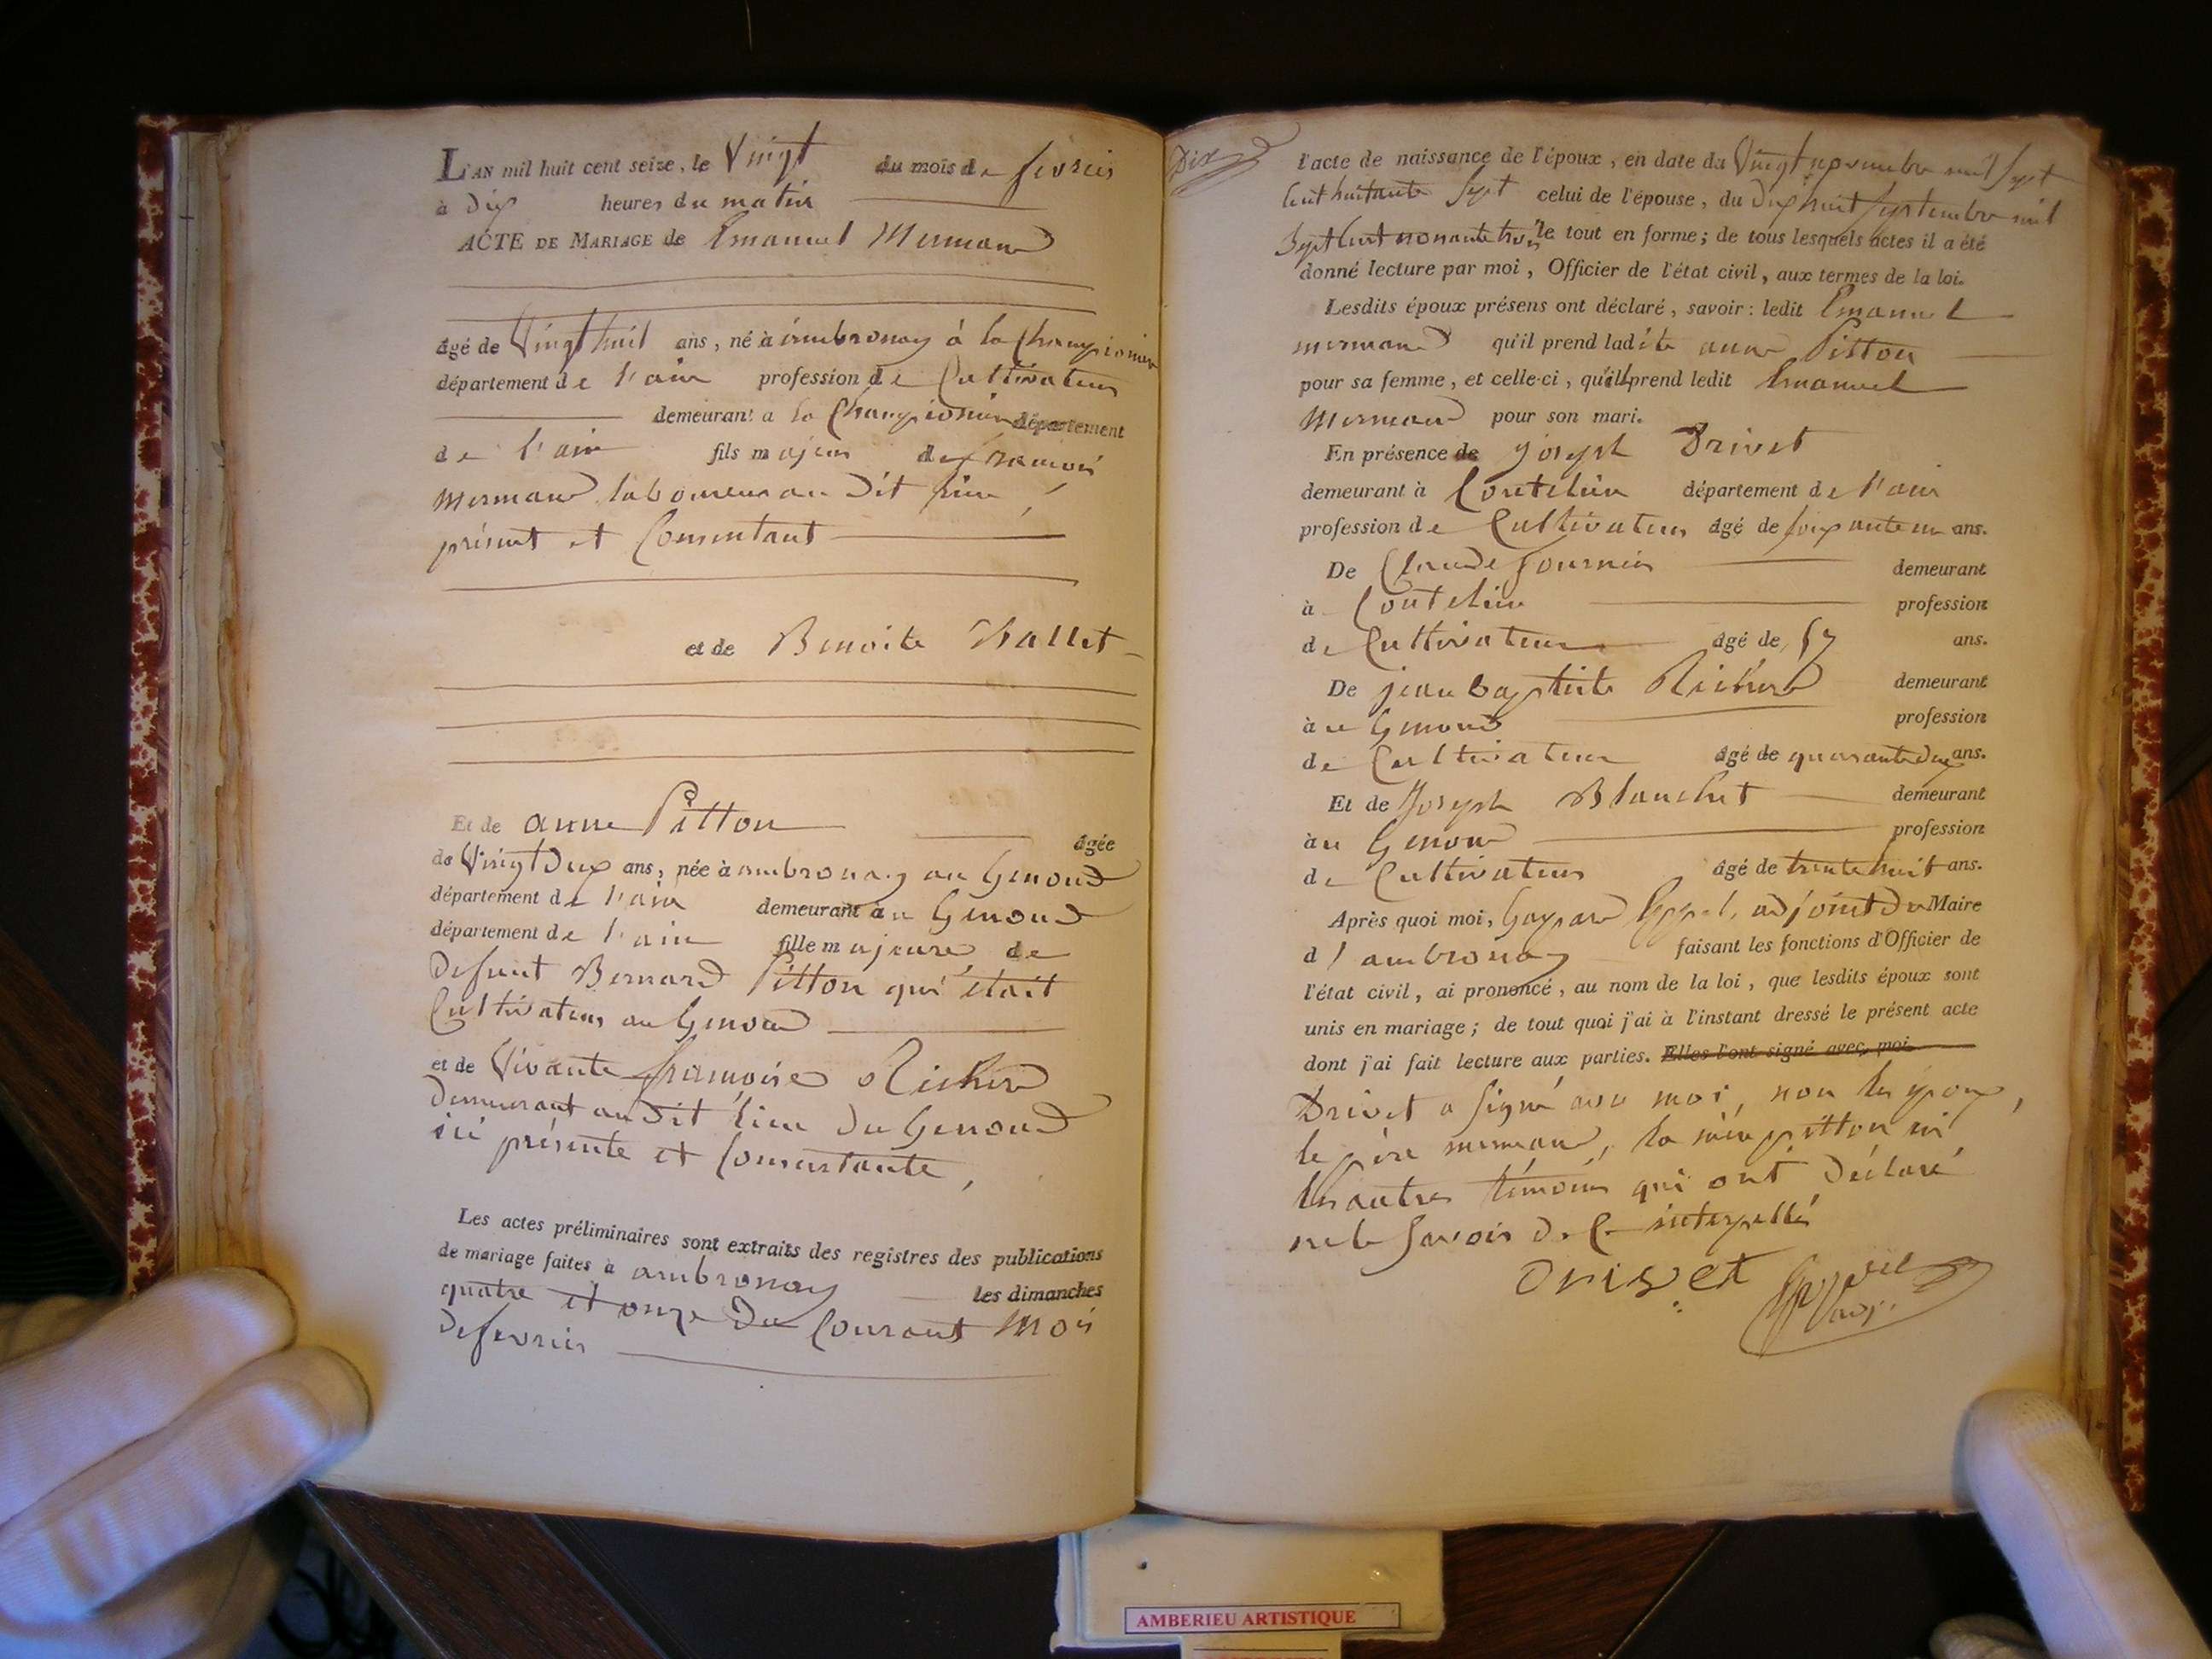 L'AN mil huit cent seize, le Vingt du mois de fevrier
à dix heures du matin
ACTE DE MARIAGE de Emanuel Mermand
âgé de Vingt huit ans, né à ambronay à la Championière
département de l'ain profession de Cultivateur
demeurant a la Championière département
de l'ain fils majeur de françois
Mermand laboureur au dit lieu,
présent et Consentant
et de Benoite Vallet
Et de anne Pitton âgée
de Vingt deux ans, née à ambronay au Genoud
département de l'ain demeurant au Genoud
département de l'ain fille majeure de
Defunt Bernard Pitton qui était
Cultivateur au Genoud
et de Vivante françoise Richerd
Demeurant au dit lieu du Genoud
ici présente et Consentante,
Les actes préliminaires sont extraits des registres des publications
de mariage faites à ambronay les dimanches
quatre et onze du Courant Mois
de fevrier
Dix
l'acte de naissance de l'époux, en date du Vingt novembre mil Sept
Cent huitante Sept celui de l'épouse, du dix huit Septembre mil
Sept Cent nonante trois le tout en forme; de tous lesquels actes il a été
donné lecture par moi, Officier de l'état civil, aux termes de la loi.
Lesdits époux présens ont déclaré, savoir: ledit Emanuel
mermand qu'il prend ladite anne Pitton
pour sa femme, et celle-ci, qu'ill prend ledit Emanuel
Mermand pour son mari.
En présence de joseph Drivet
demeurant à Coutelieu département de l'ain
profession de Cultivateur âgé de soixante un ans.
De Claude fournier demeurant
à Coutelieu profession
de Cultivateur âgé de 57 ans.
De jean baptiste Richerd demeurant
àu Genoud profession
de Cultivateur âgé de quarante deux ans.
Et de Joseph Blanchet demeurant
àu Genoud profession
de Cultivateur âgé de trente huit ans.
Après quoi moi, Gaspard adjoint du Maire
d'ambronay faisant les fonctions d'Officier de
l'état civil, ai prononcé, au nom de la loi, que lesdits époux sont
unis en mariage; de tout quoi j'ai à l'instant dressé le présent acte
dont j'ai fait lecture aux parties. Elles l'ont signé avec moi
Drivet a Signé avec moi, non les époux,
le père mermand, la mère pitton ni
les autres témoins qui ont déclaré
ne le Savoir de Ce interpellés
Drivet
AMBERIEU ARTISTIQUE